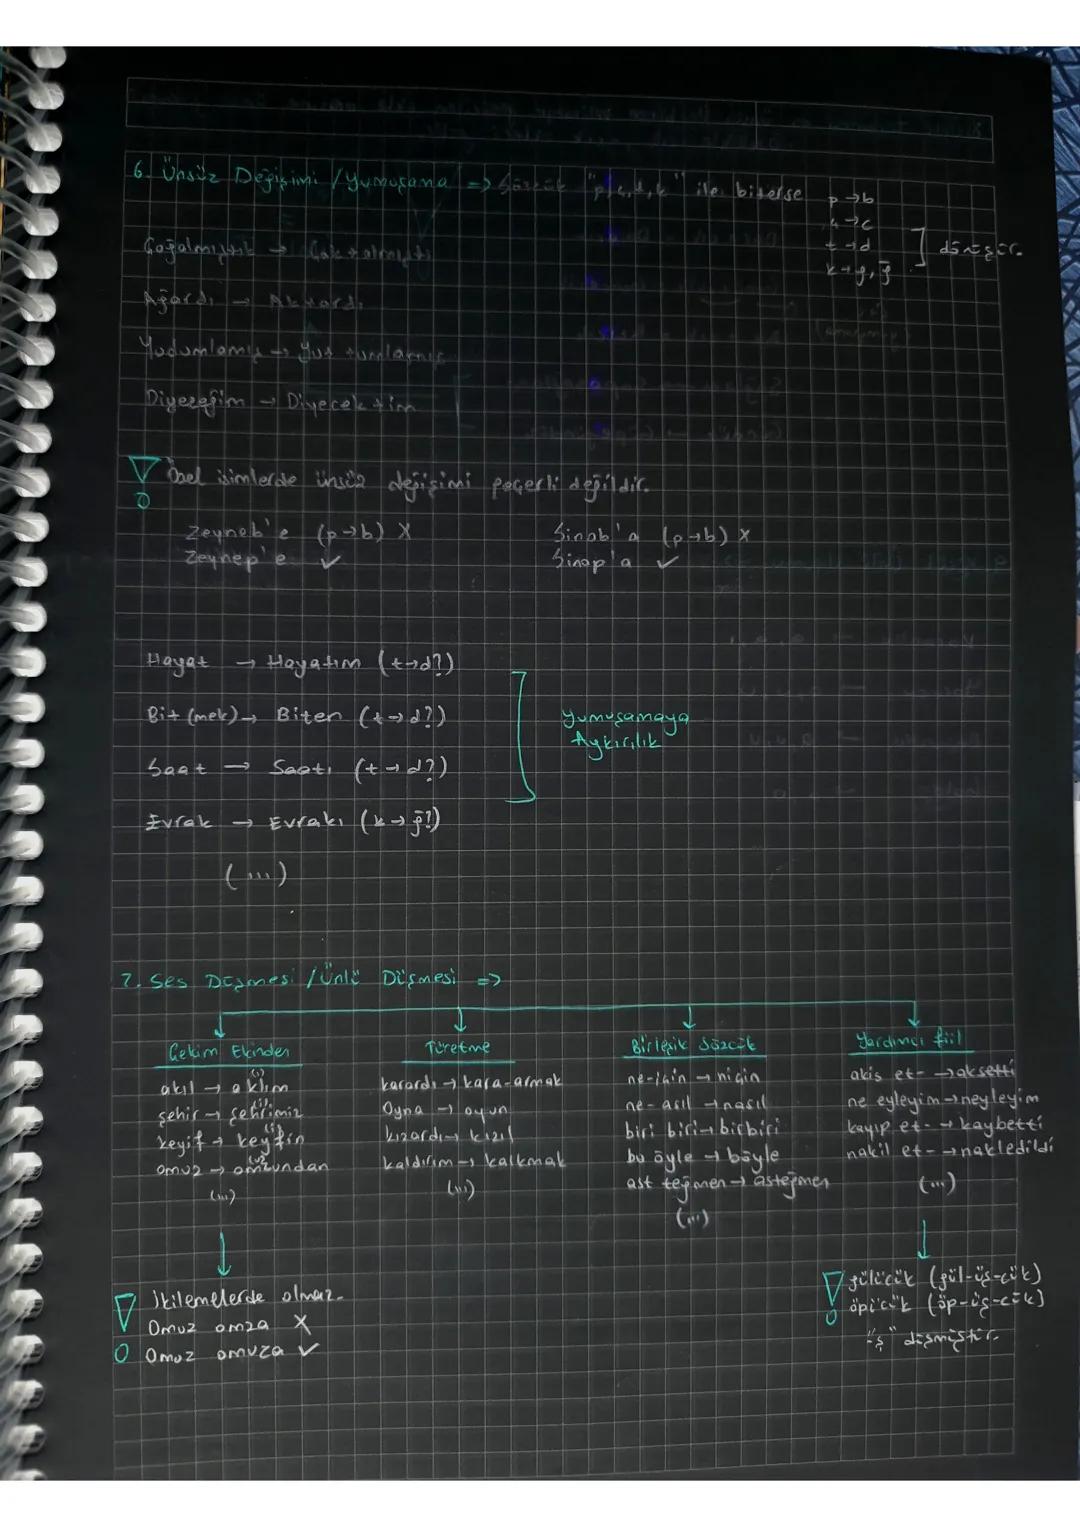 6. Ünsüz Değişimi / Yumuşama => Sözcük "p,ç,t,k" ile biterse
p → b
ç → c
t → d
k → g, ğ
] dönüşür.
Çoğalmıştı → Çok + almıştı
Ağardı → Ak + ardı
Yudumlamış → Yut + umlamış
Diyeceğim → Diyecek + im
Özel isimlerde ünsüz değişimi geçerli değildir.
Zeyneb'e (p→b) X
Zeynep'e ✓
Sinob'a (p→b) X
Sinop'a ✓
Hayat → Hayatım (t→d?)
Bit (mek) → Biten (t→d?)
Saat → Saati (t→d?)
Evrak → Evrakı (k→ğ?)
(...)
Yumuşamaya
Aykırılık
7. Ses Düşmesi / Ünlü Düşmesi =>
Çekim Ekinden
akıl → aklım (ı)
şehir → şehrimiz (i)
keyif → keyfin (i)
omuz → omzundan (u)
(...)
İkilemelerde olmaz.
Omuz omza X
Omuz omuza ✓
Türetme
karardı → kara-armak
Oyna → oyun
kızardı → kızıl
kaldırım → kalkmak
(...)
Birleşik Sözcük
ne-için → niçin
ne-asıl → nasıl
biri biri → birbiri
bu öyle → böyle
ast teğmen → asteğmen
(...)
Yardımcı fiil
akis et- → aksetti
ne eyleyim → neyleyim
kayıp et- → kaybetti
nakil et- → nakledildi
(...)
gülücük (gül-üş-cük)
öpücük (öp-üş-cük)
"ş" düşmüştür.